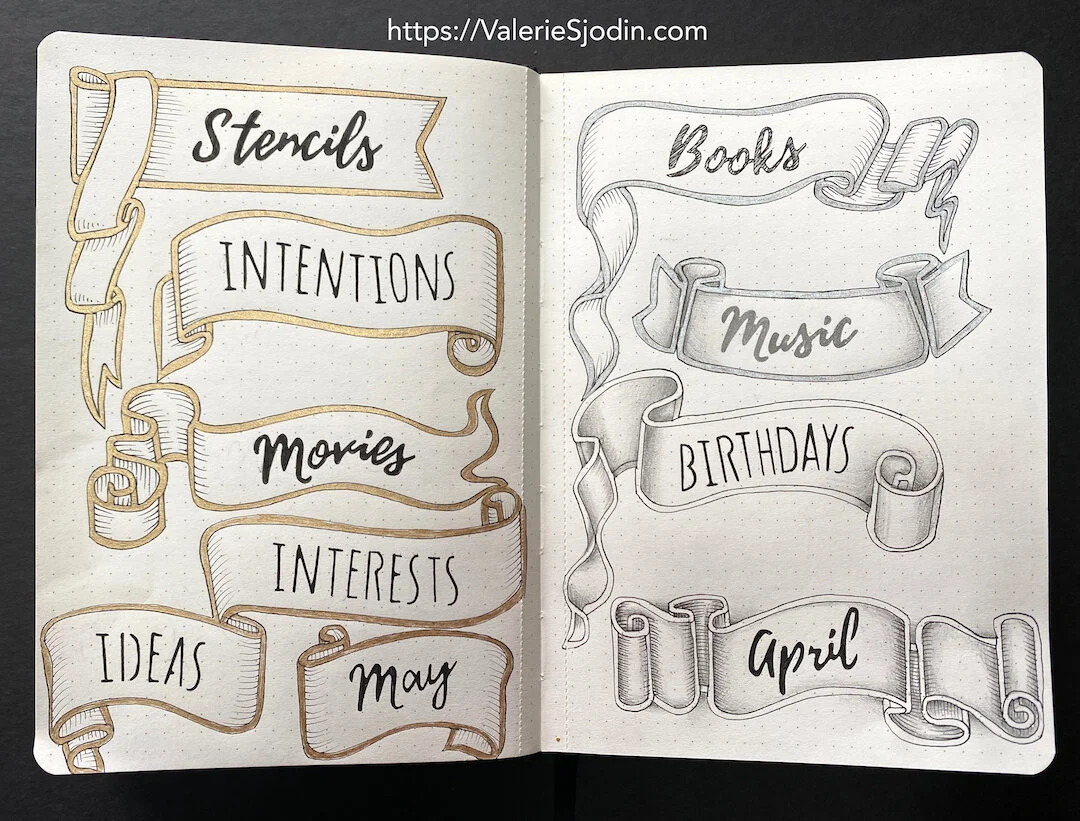 https://ValerieSjodin.com
Stencils
INTENTIONS
Movies
INTERESTS
IDEAS
May
Books
Music
BIRTHDAYS
April